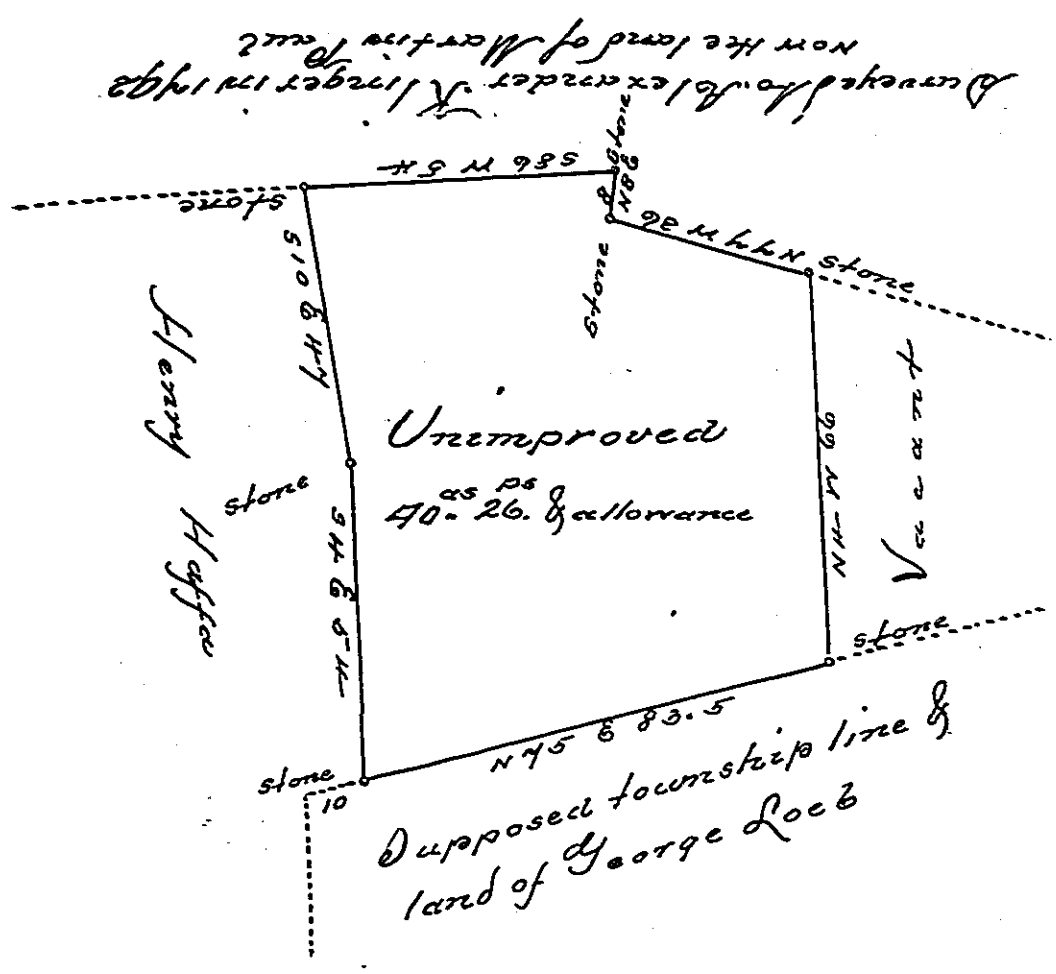 Surveyed to. Alexander Klinger in 1792
now the land of Martin Paul
stone
S86 W 54
stone
N8E
8
stone
N77 W 36
stone
S10 E 47
Henry Haffa
stone
Unimproved
as ps
40.. 26. & allowance
N4 W 66
Vacant
S4 E 54
stone
N75 E 83.5
stone
10
Supposed township line &
land of George Loeb